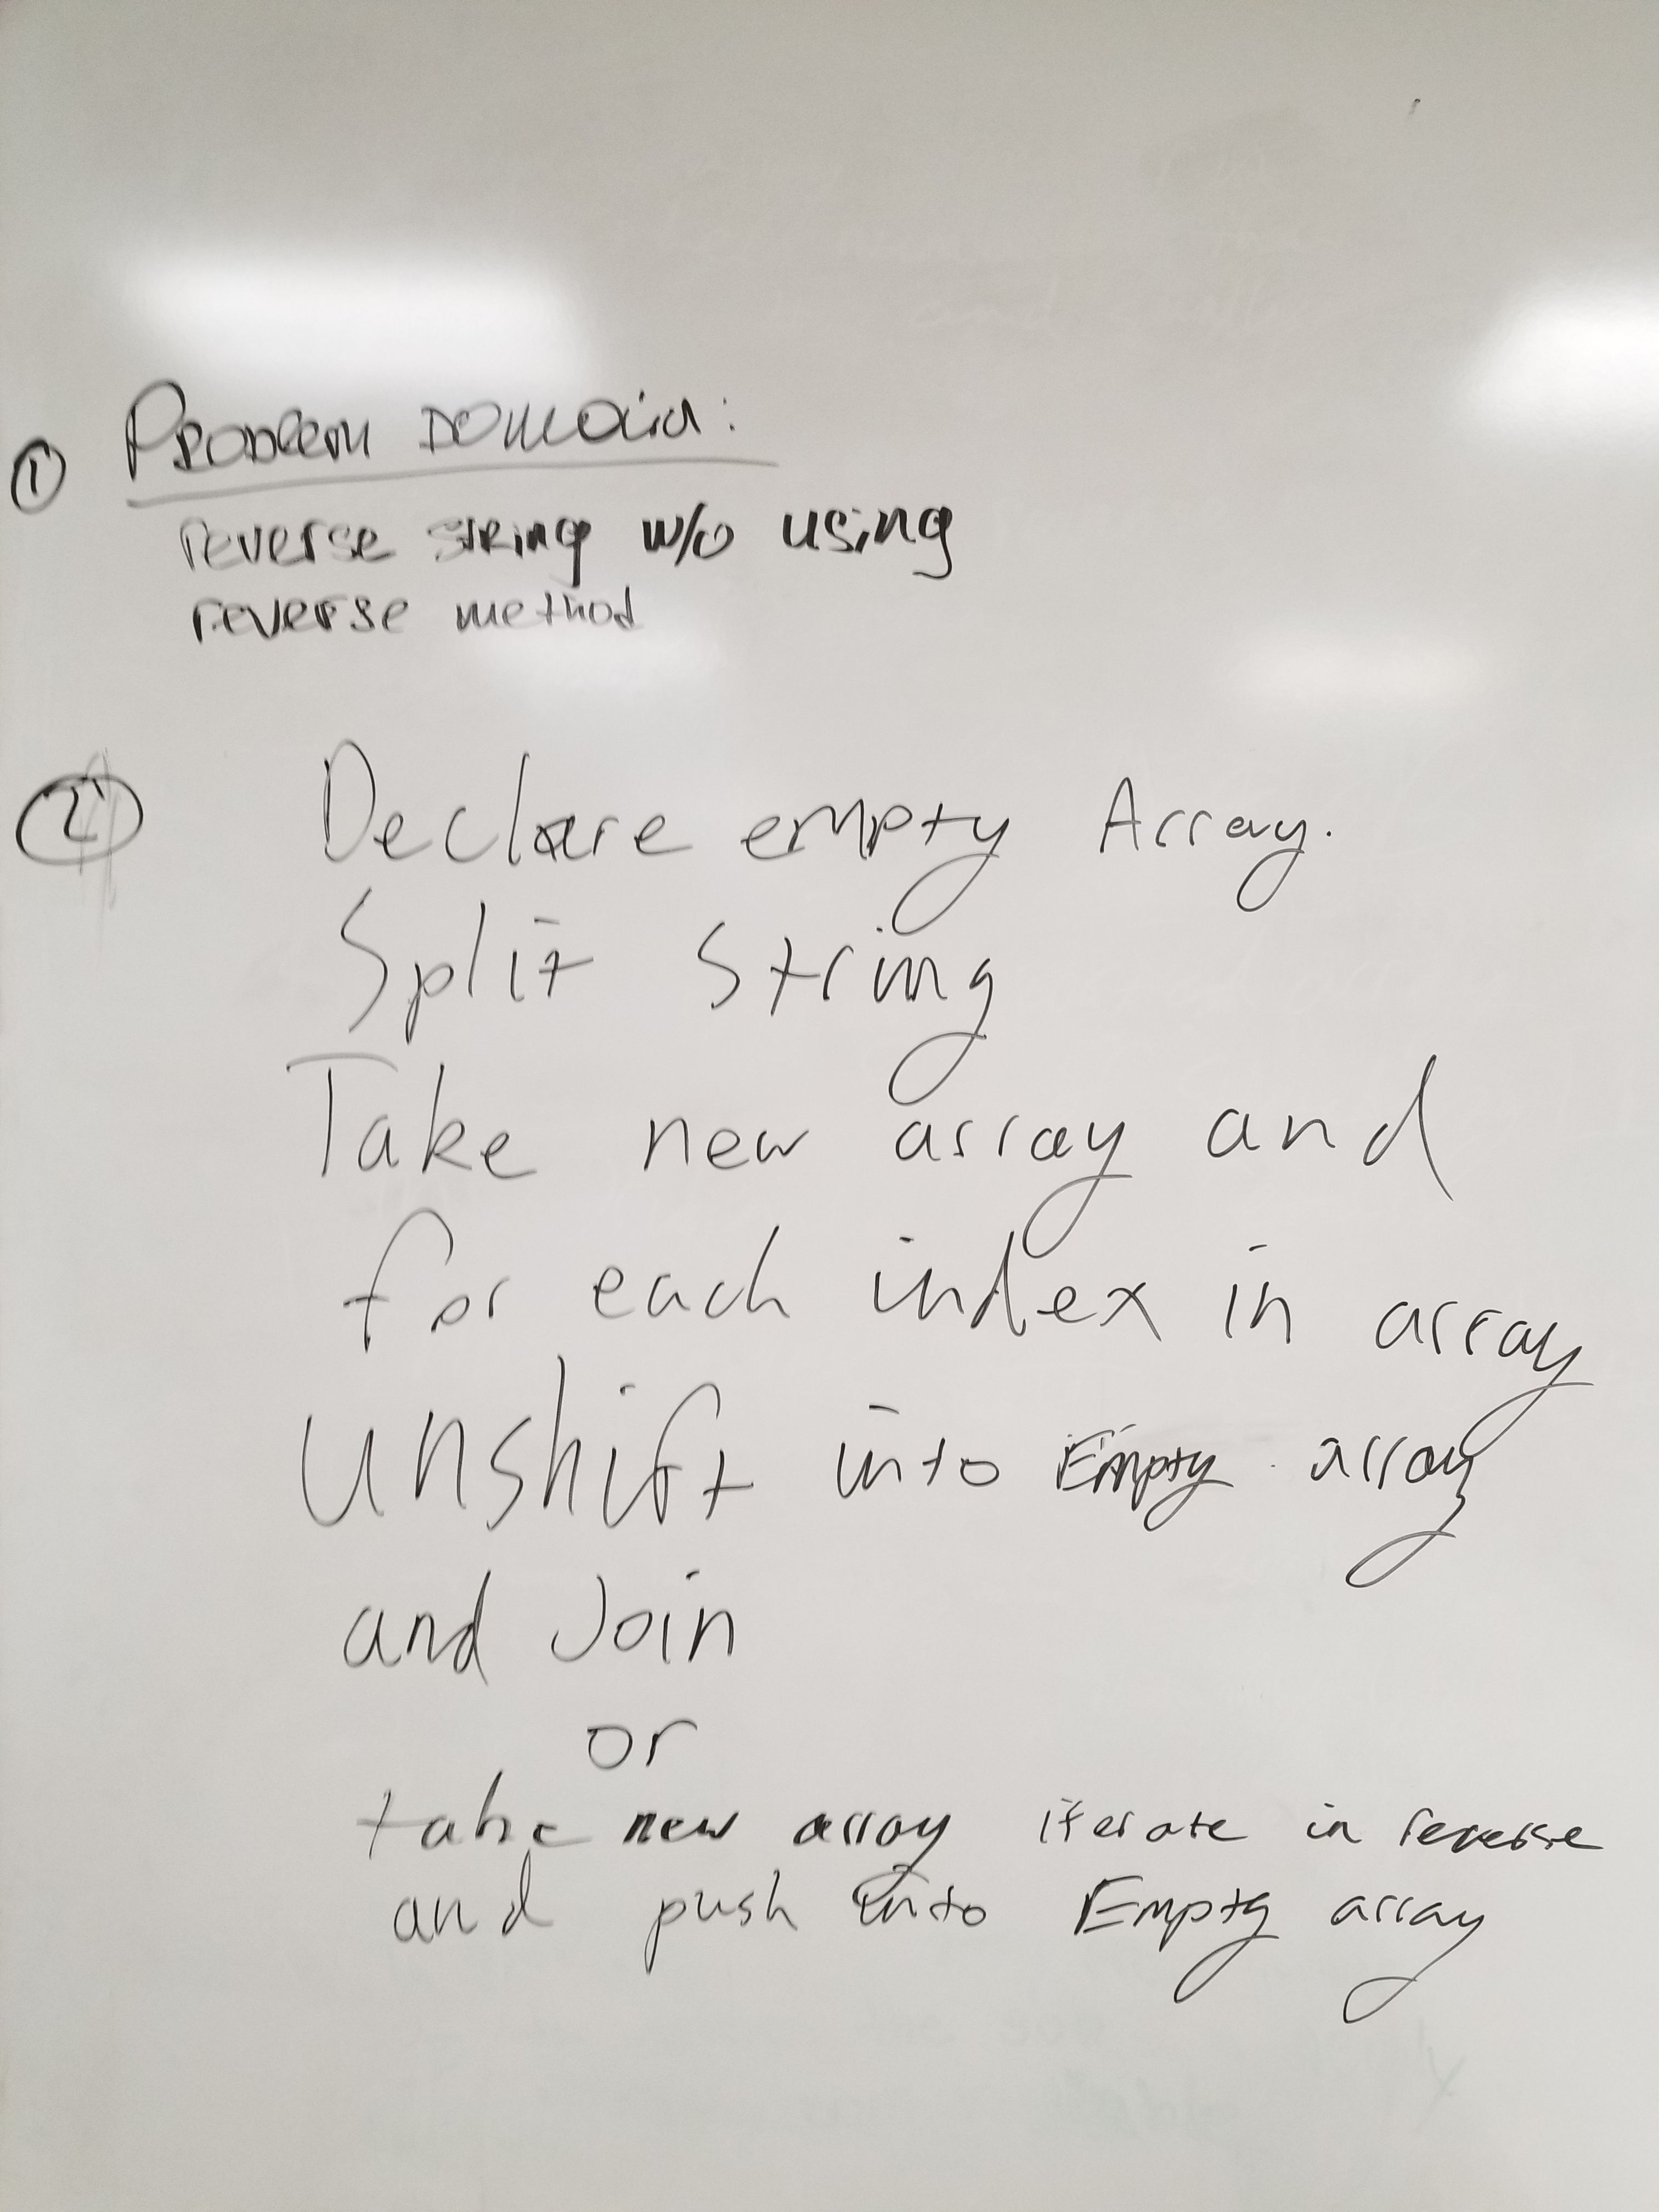 ① Problem Domain:
reverse string w/o using
reverse method
② Declare empty Array.
Split String
Take new array and
for each index in array
unshift into Empty array
and Join
or
take new array iterate in reverse
and push into Empty array